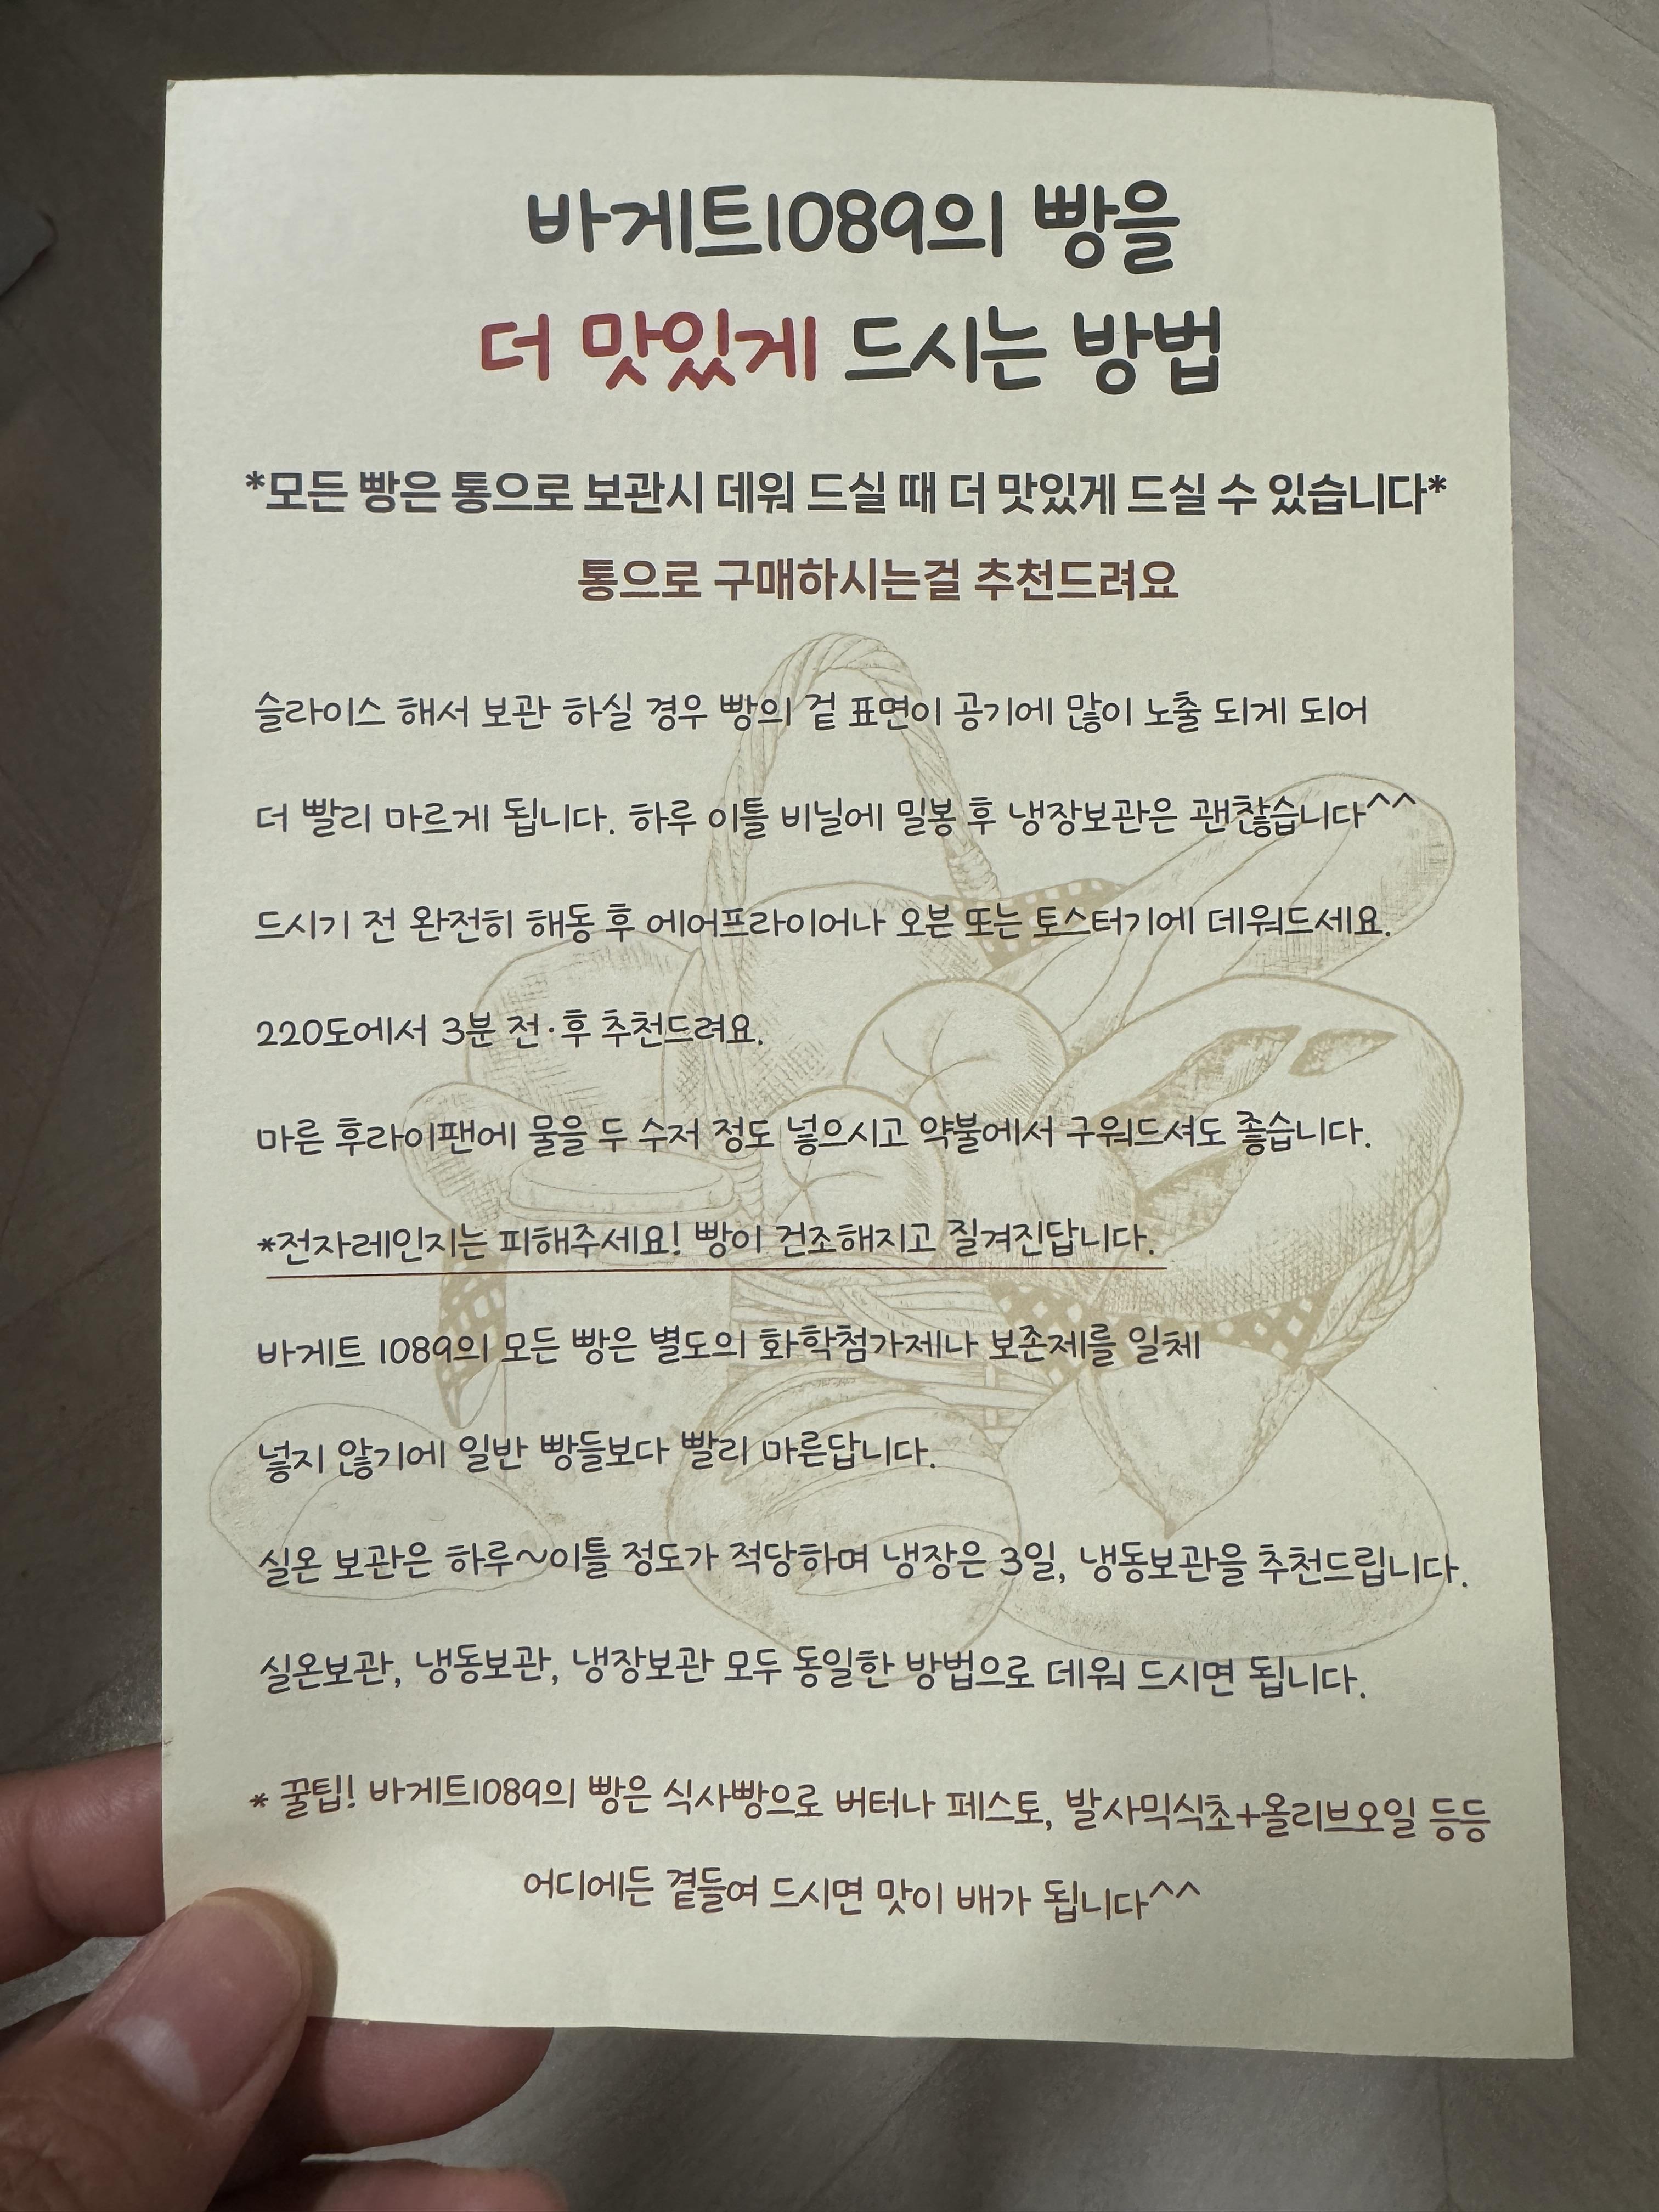 바게트1089의 빵을
더 맛있게 드시는 방법
*모든 빵은 통으로 보관시 데워 드실 때 더 맛있게 드실 수 있습니다*
통으로 구매하시는걸 추천드려요
슬라이스 해서 보관 하실 경우 빵의 겉 표면이 공기에 많이 노출 되게 되어
더 빨리 마르게 됩니다. 하루 이틀 비닐에 밀봉 후 냉장보관은 괜찮습니다^^
드시기 전 완전히 해동 후 에어프라이어나 오븐 또는 토스터기에 데워드세요.
220도에서 3분 전·후 추천드려요.
마른 후라이팬에 물을 두 수저 정도 넣으시고 약불에서 구워드셔도 좋습니다.
*전자레인지는 피해주세요! 빵이 건조해지고 질겨진답니다.
바게트 1089의 모든 빵은 별도의 화학첨가제나 보존제를 일체
넣지 않기에 일반 빵들보다 빨리 마른답니다.
실온 보관은 하루~이틀 정도가 적당하며 냉장은 3일, 냉동보관을 추천드립니다.
실온보관, 냉동보관, 냉장보관 모두 동일한 방법으로 데워 드시면 됩니다.
* 꿀팁! 바게트1089의 빵은 식사빵으로 버터나 페스토, 발사믹식초+올리브오일 등등
어디에든 곁들여 드시면 맛이 배가 됩니다^^